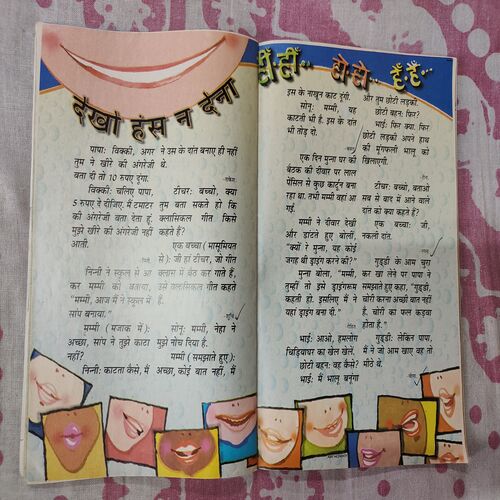 देखो हंस न देना
हीं हीं... हो हो... हैं हैं...
पापा: विक्की, अगर
तुम ने खीरे की अंगरेजी
बता दी तो 10 रुपए दूंगा.
विक्की: चलिए पापा,
5 रुपए दे दीजिए. मैं टमाटर
की अंगरेजी बता देता हूं.
मुझे खीरे की अंगरेजी नहीं
आती.
निन्नी ने स्कूल से आ
कर मम्मी को बताया,
"मम्मी, आज मैं ने स्कूल में
सांप बनाया."
मम्मी (मजाक में):
अच्छा, सांप ने तुझे काटा
नहीं?
निन्नी: काटता कैसे, मैं
ने उस के दांत बनाए ही नहीं
थे.
टीचर: बच्चो, क्या
तुम बता सकते हो कि
क्लासिकल गीत किसे
कहते हैं?
एक बच्चा (मासूमियत
से): जी हां टीचर, जो गीत
क्लास में बैठ कर गाते हैं,
उसे क्लासिकल गीत कहते
हैं.
सोनू: मम्मी, नेहा ने
मुझे नोच दिया है.
मम्मी (समझाते हुए):
अच्छा, कोई बात नहीं, मैं
इस के नाखून काट दूंगी.
सोनू: मम्मी, यह
काटती भी है. इस के दांत
भी तोड़ दो.
एक दिन मुन्ना घर की
बैठक की दीवार पर लाल
पेंसिल से कुछ कार्टून बना
रहा था. तभी मम्मी वहां आ
गईं.
मम्मी ने दीवार देखी
और डांटते हुए बोलीं,
"क्यों रे मुन्ना, यह कोई
जगह थी ड्राइंग करने की?"
मुन्ना बोला, "मम्मी,
तुम्हीं तो इसे ड्राइंगरूम
कहती हो. इसलिए मैं ने
यहां ड्राइंग बना दी."
भाई: आओ, हमलोग
चिड़ियाघर का खेल खेलें.
छोटी बहन: वह कैसे?
भाई: मैं भालू बनूंगा
और तुम छोटी लड़की.
छोटी बहन: फिर?
भाई: फिर क्या, फिर
छोटी लड़की अपने हाथ
की मूंगफली भालू को
खिलाएगी.
टीचर: बच्चो, बताओ
सब से बाद में आने वाले
दांत को क्या कहते हैं?
एक बच्चा: जी,
नकली दांत.
गुड्डी के आम चुरा
कर खा लेने पर पापा ने
समझाते हुए कहा, "गुड्डी,
चोरी करना अच्छी बात नहीं
है. चोरी का फल कड़वा
होता है."
गुड्डी: लेकिन पापा,
मैं ने जो आम खाए वह तो
मीठे थे.